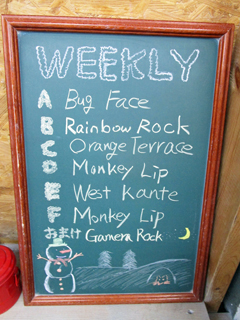 WEEKLY
A Bug Face
B Rainbow Rock
C Orange Terrace
D Monkey Lip
E West Kante
F Monkey Lip
おまけ Gamera Rock